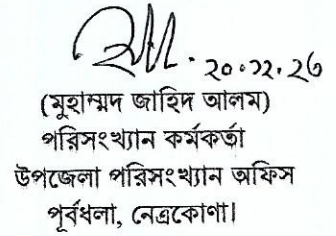 ২০.১২.২৩
(মুহাম্মদ জাহিদ আলম)
পরিসংখ্যান কর্মকর্তা
উপজেলা পরিসংখ্যান অফিস
পূর্বধলা, নেত্রকোণা।